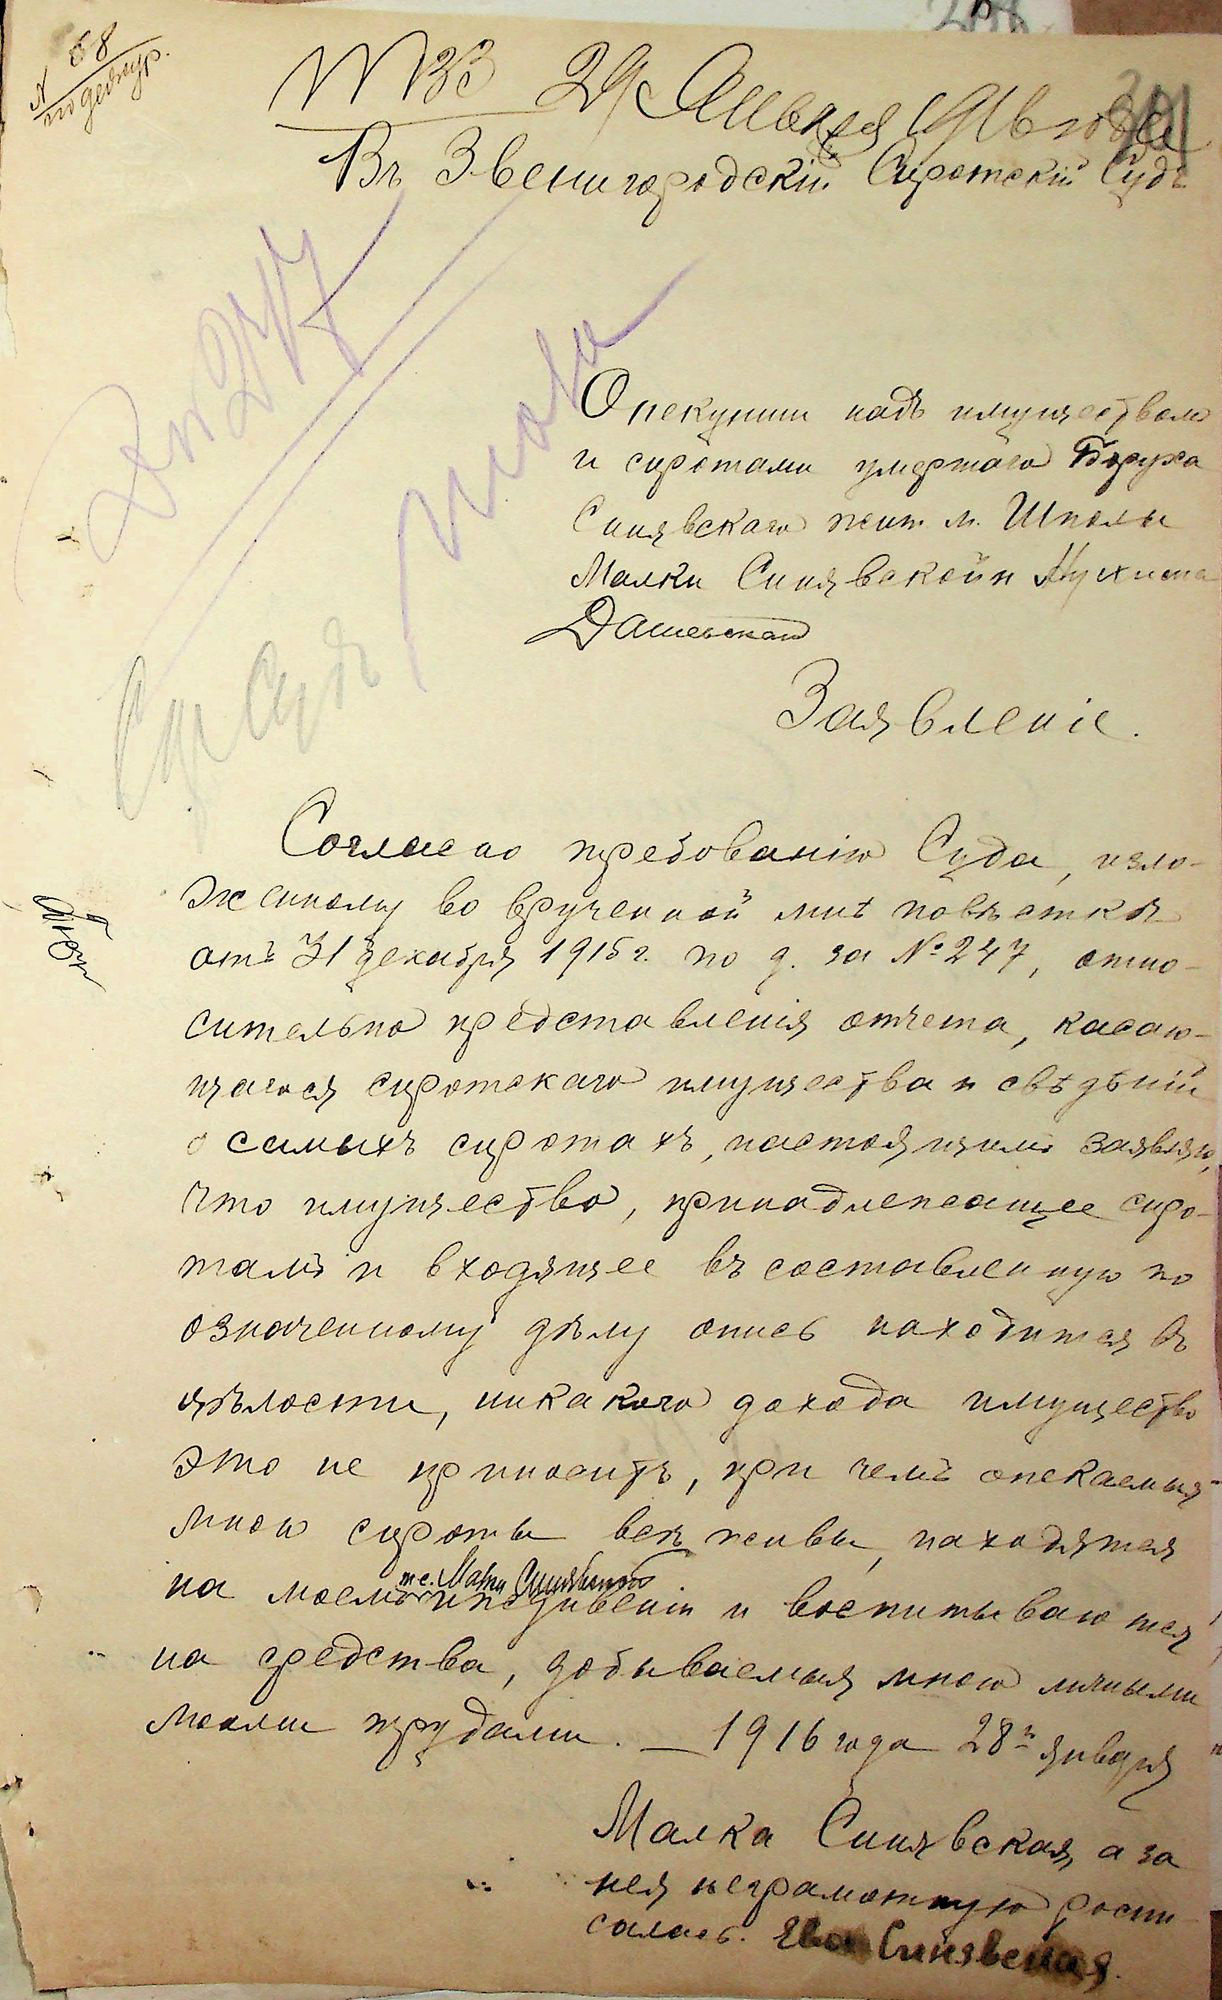 N 58
по дежур.
N 133 29 Января
301
Въ Звенигородскій Сиротскій Судъ
247
Шпола
Сир Судъ
Опекунши надъ имуществомъ
и сиротами умершаго Боруха
Синявскаго жит. м. Шполы
Малки Синявской и Нухима
Дашевскаго
Заявленіе.
Согласно требованію Суда, изло-
женному во врученной мнѣ повѣсткѣ
отъ 31 декабря 1915 г. по д. за № 247, отно-
сительно представленія отчета, касаю-
щагося сиротскаго имущества и свѣдѣній
о самыхъ сиротахъ, настоящимъ заявляю,
что имущество, принадлежащее сиро-
тамъ и входящее въ составленную по
означенному дѣлу опись находится въ
цѣлости, никакого дохода имущество
это не приноситъ, при чемъ опекаемыя
мною сироты всѣ живы, находятся
т.е. Малки Синявской
на моемъ иждивеніи и воспитываются
на средства, добываемыя мною личными
моими трудами. — 1916 года 28го января
Малка Синявская, а за
нея неграмотную роспи-
салась. Ева Синявская.